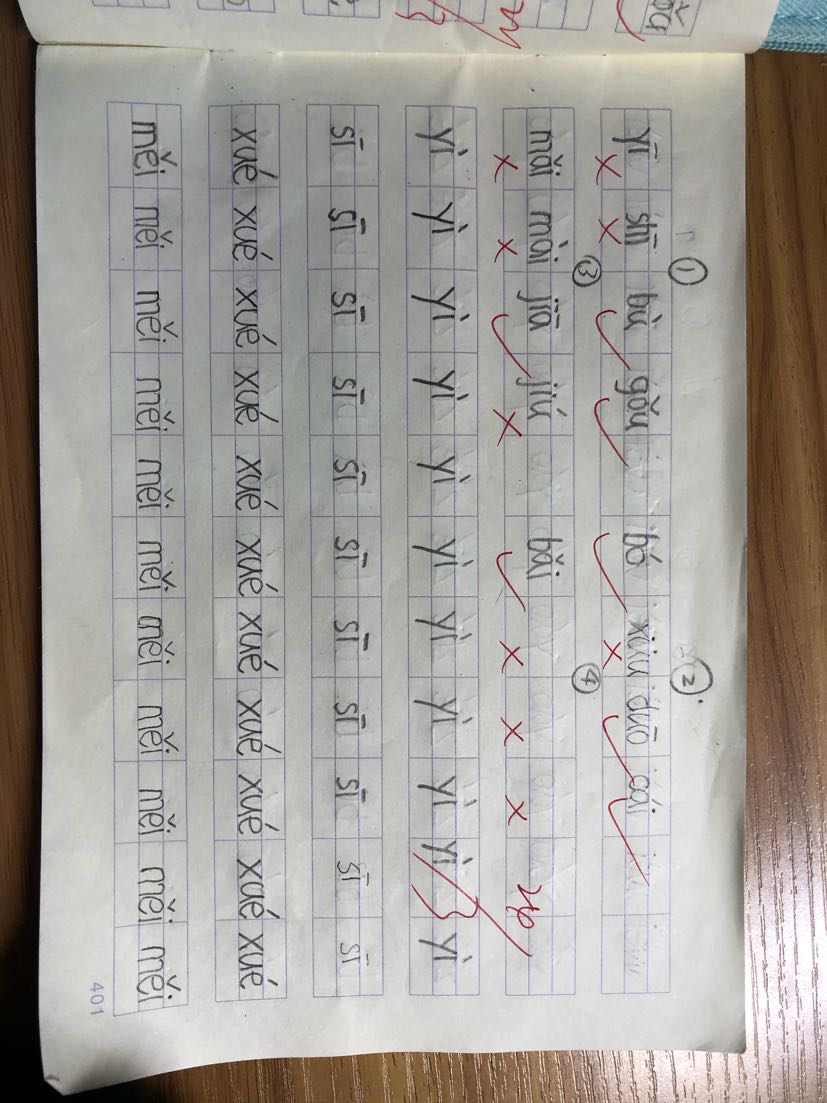 ① ②
yī bù gǒu bó duō cái
③ ④
mǎi mài jiā jiú bǎi
yì yì yì yì yì yì yì yì yì yì yì
sī sī sī sī sī sī sī sī sī sī sī
xué xué xué xué xué xué xué xué xué xué xué
měi měi měi měi měi měi měi měi měi měi měi
401